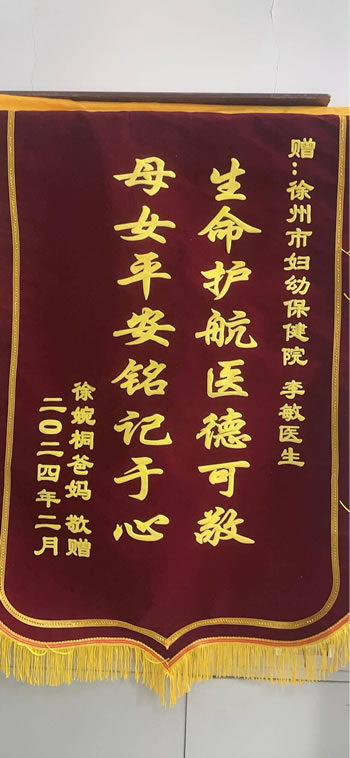 赠:徐州市妇幼保健院 李敏医生
生命护航医德可敬
母女平安铭记于心
徐婉桐爸妈 敬赠
二〇二四年二月